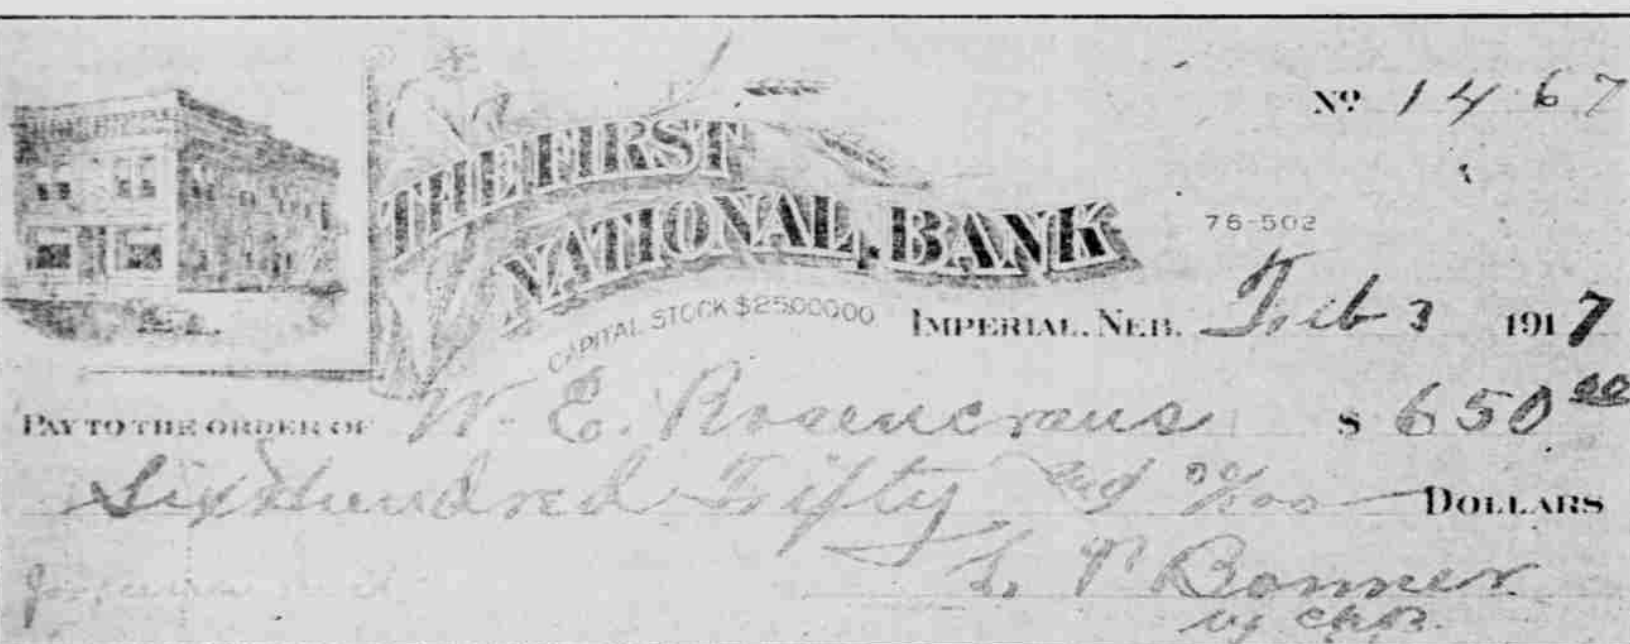 No. 1467
THE FIRST
NATIONAL BANK
76-502
CAPITAL STOCK $25000.00
IMPERIAL, NEB. Feb 3 1917
PAY TO THE ORDER OF W. E. Rosencrans $ 650 00
Six Hundred Fifty and 00/100 DOLLARS
L. P. Bonner
by